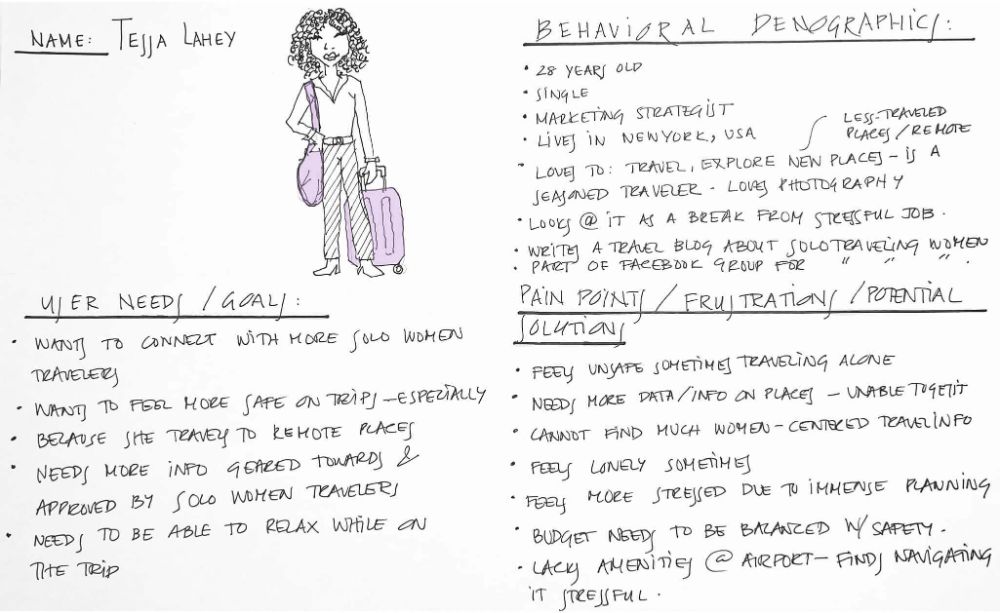 NAME: TESSA LAHEY
BEHAVIORAL DENOGRAPHICS:
• 28 YEARS OLD
• SINGLE
• MARKETING STRATEGIST
• LIVES IN NEWYORK, USA
LESS-TRAVELED
PLACES/REMOTE
• LOVES TO: TRAVEL, EXPLORE NEW PLACES - IS A
SEASONED TRAVELER - LOVES PHOTOGRAPHY
• LOOKS @ IT AS A BREAK FROM STRESSFUL JOB.
• WRITES A TRAVEL BLOG ABOUT SOLO TRAVELING WOMEN
• PART OF FACEBOOK GROUP FOR " " ".
USER NEEDS / GOALS:
• WANTS TO CONNECT WITH MORE SOLO WOMEN
TRAVELERS
• WANTS TO FEEL MORE SAFE ON TRIPS - ESPECIALLY
• BECAUSE SHE TRAVELS TO REMOTE PLACES
• NEEDS MORE INFO GEARED TOWARDS &
APPROVED BY SOLO WOMEN TRAVELERS
• NEEDS TO BE ABLE TO RELAX WHILE ON
THE TRIP
PAIN POINTS / FRUSTRATIONS / POTENTIAL
SOLUTIONS
• FEELS UNSAFE SOMETIMES TRAVELING ALONE
• NEEDS MORE DATA/INFO ON PLACES - UNABLE TO GET IT
• CANNOT FIND MUCH WOMEN-CENTERED TRAVEL INFO
• FEELS LONELY SOMETIMES
• FEELS MORE STRESSED DUE TO IMMENSE PLANNING
• BUDGET NEEDS TO BE BALANCED W/ SAFETY.
• LACKS AMENITIES @ AIRPORT - FINDS NAVIGATING
IT STRESSFUL.